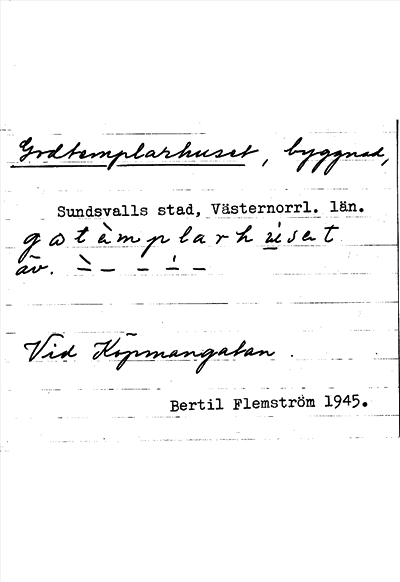 Godtemplarhuset, byggnad,
Sundsvalls stad, Västernorrl. län.
gωtèmplarhu̇́set
äv. `– – – ´– –
Vid Köpmangatan.
Bertil Flemström 1945.